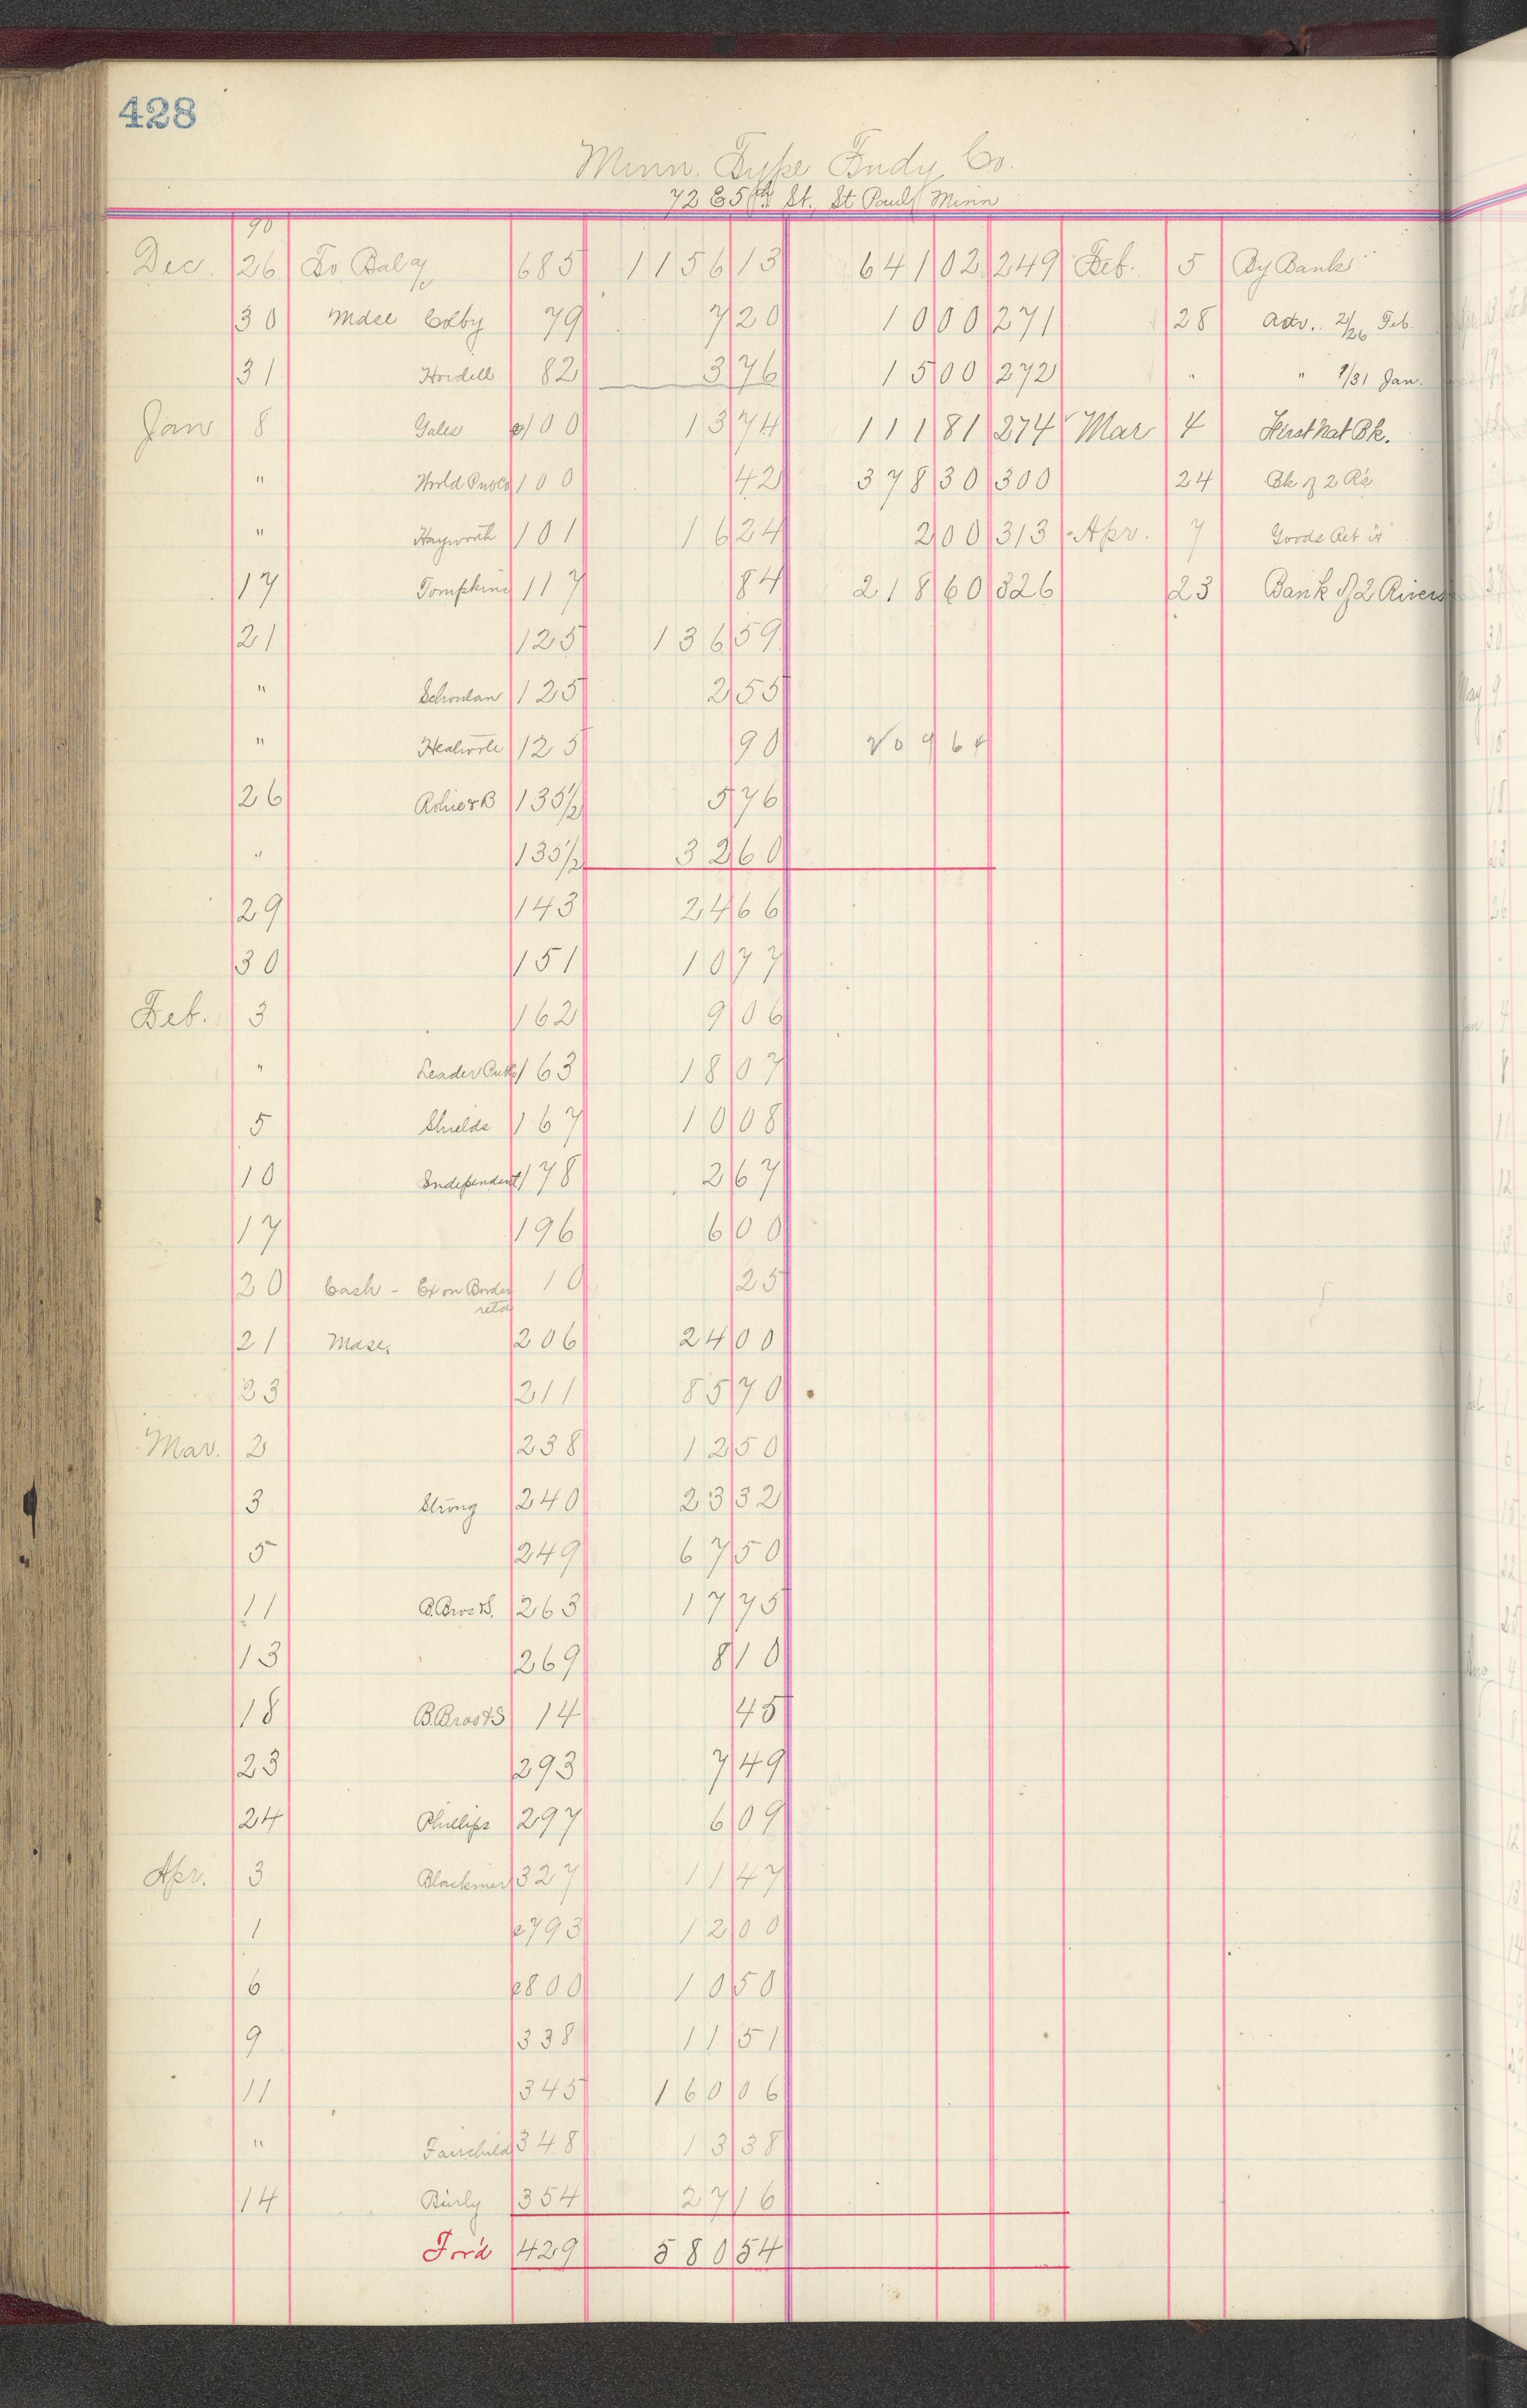 428
Minn. Type Fndy Co.
72 E 5th St., St Paul Minn
90
Dec. 26 To Bal a/c 685 1156 13 641 02 249 Feb. 5 By Bank
30 Mdse Colby 79 7 20 10 00 271 28 Adv. 2/26 Feb.
31 Hordell 82 3 76 15 00 272 " " 1/31 Jan.
Jan 8 Gales 100 13 74 111 81 274 Mar 4 First Nat Bk.
" World Pub Co 100 42 378 30 300 24 Bk of 2 R's
" Hayworth 101 16 24 2 00 313 Apr. 7 Goods Ret'd
17 Tompkins 117 84 218 60 326 23 Bank of 2 Rivers
21 125 136 59
" 125 2 55
" 125 90 209 64
26 135 1/2 5 76
" 135 1/2 32 60
29 143 24 66
30 151 10 77
Feb. 3 162 9 06
" Leader Pub Co 163 18 07
5 Shields 167 10 08
10 Independent 178 2 67
17 196 6 00
20 Cash - Ex on Border 10 25
retd
21 Mdse. 206 24 00
23 211 85 70
Mar. 2 238 12 50
3 Strong 240 23 32
5 249 67 50
11 B. Bros & S. 263 17 75
13 269 8 10
18 B. Bros & S 14 45
23 293 7 49
24 Phillips 297 6 09
Apr. 3 Blackmer 327 11 47
1 c793 12 00
6 c800 10 50
9 338 11 51
11 345 160 06
" Fairchild 348 13 38
14 Burly 354 27 16
For'd 429 580 54